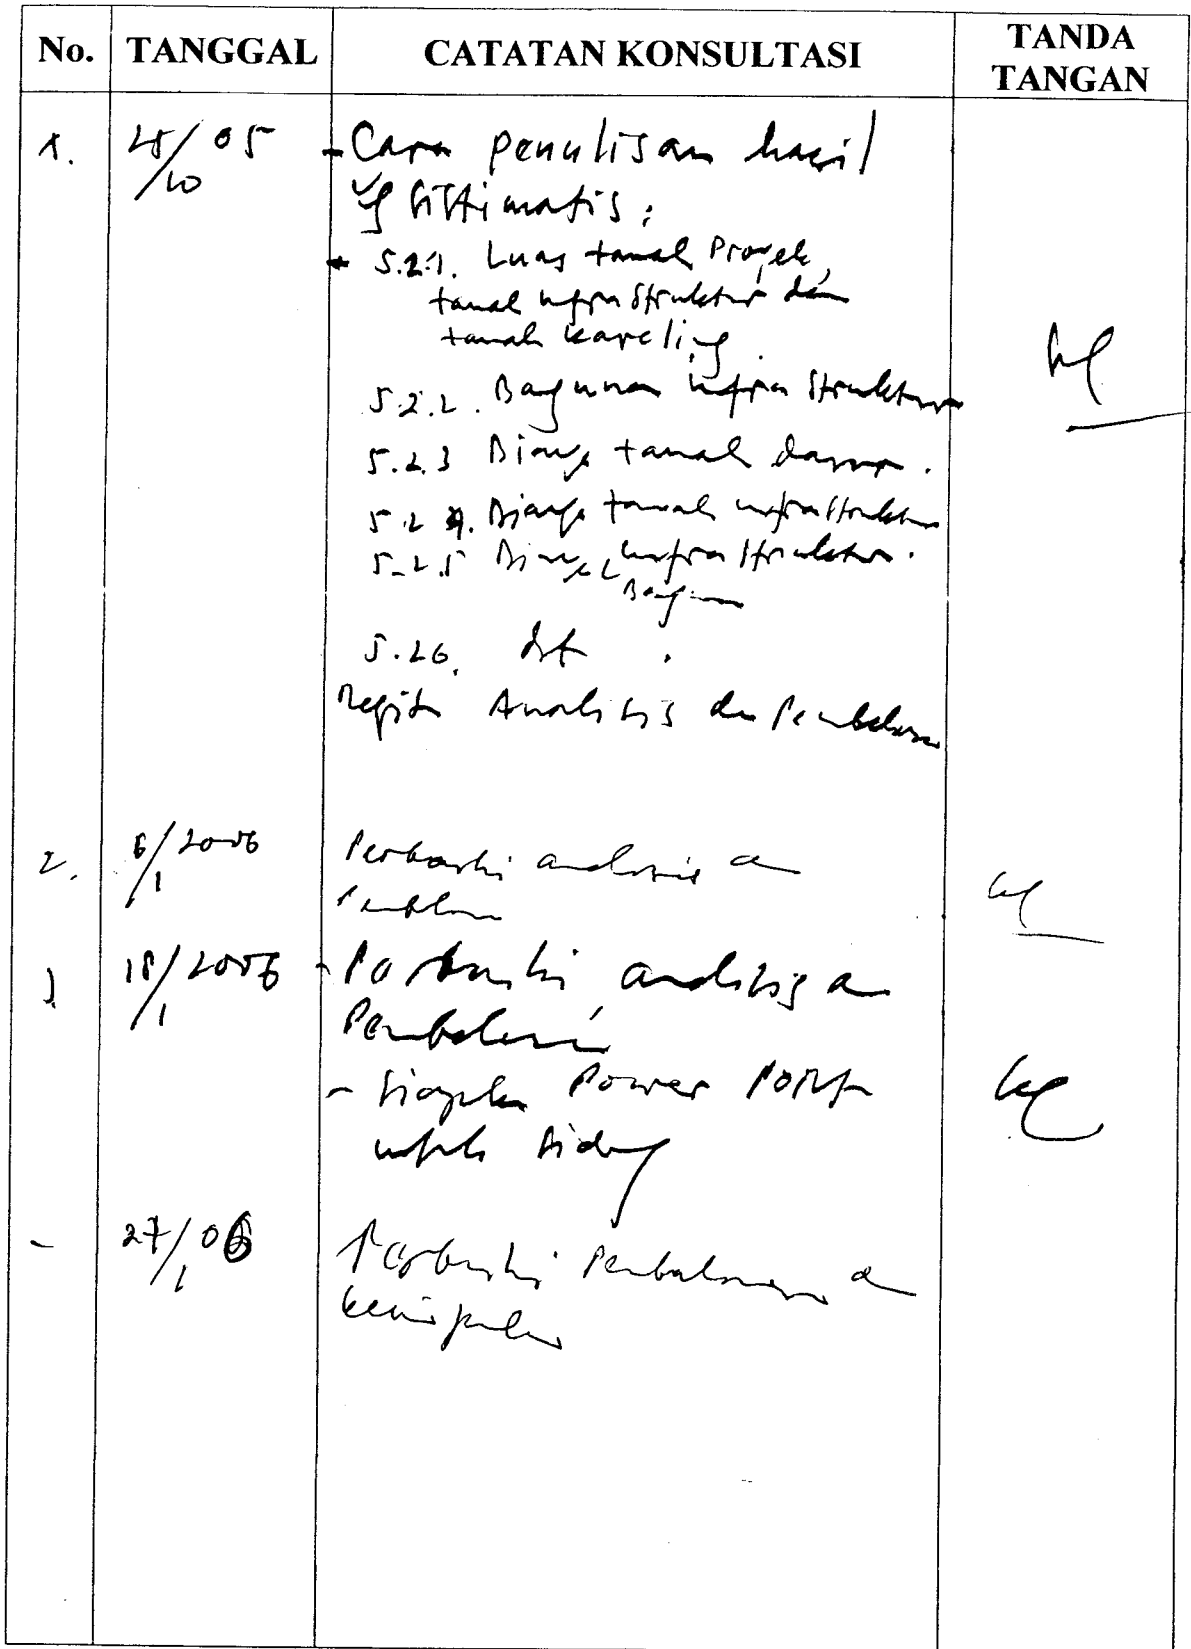 No. TANGGAL CATATAN KONSULTASI TANDA TANGAN
1. 25/10 05 - Cara penulisan hasil
yg sistimatis :
5.2.1. Luas tanah Proyek,
tanah infra struktur dan
tanah kaveling.
5.2.2. Bangunan infra struktur
5.2.3 Biaya tanah dasar.
5.2.4. Biaya tanah infrastruktur
5.2.5 Biaya infra struktur.
Bangunan
5.2.6. dst.
Analisis dan Pembahasan
2. 6/1 2006 Perbaiki analisis dan
Pembahasan
3. 18/1 2006 - Perbaiki analisis dan
Pembahasan
- Siapkan Power Point
untuk sidang
- 27/1 06 Perbaiki Pembahasan dan
kesimpulan